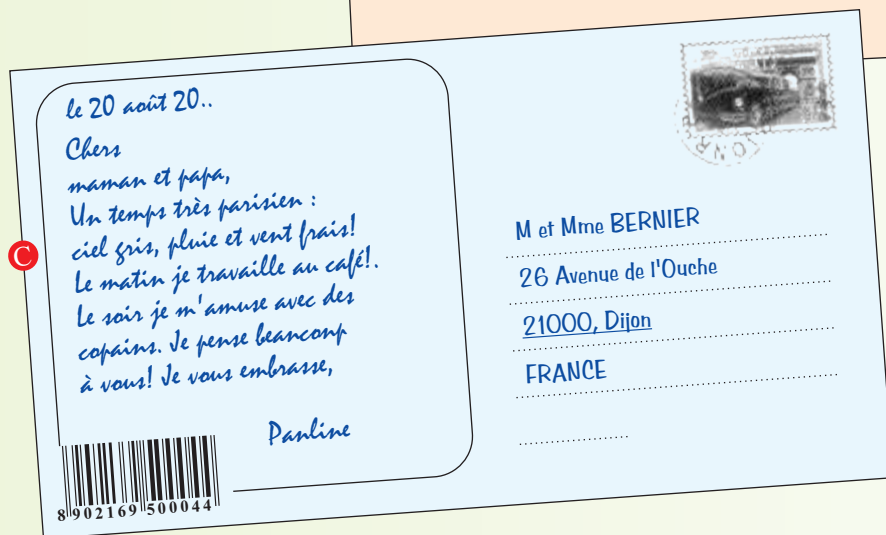 le 20 août 20..
Chers
maman et papa,
Un temps très parisien :
ciel gris, pluie et vent frais!
Le matin je travaille au café!.
Le soir je m'amuse avec des
copains. Je pense beanconp
à vous! Je vous embrasse,
Panline
C
8902169 500044
M et Mme BERNIER
26 Avenue de l'Ouche
21000, Dijon
FRANCE